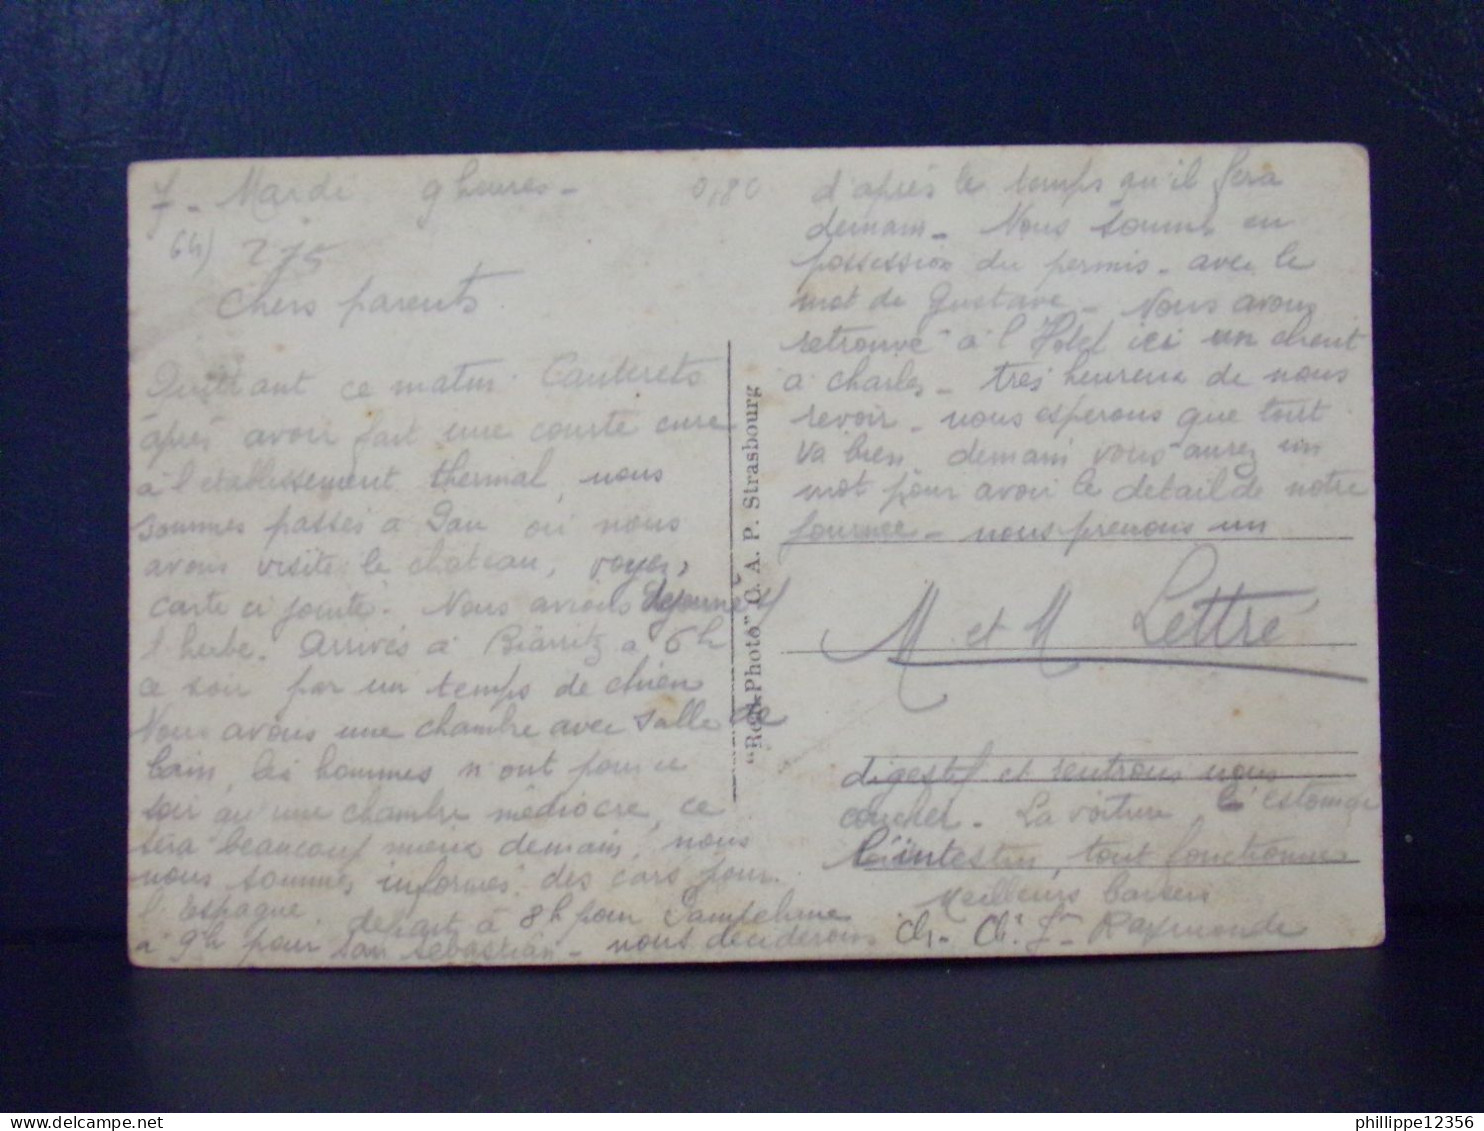 7 - Mardi 9 heures -
0,80
64)
275
Chers parents.
Quittant ce matin Cauterets
après avoir fait une courte cure
à l'etablissement thermal, nous
sommes passés a Pau où nous
avons visite le chateau, voyez,
carte ci jointe. Nous avions déjeuné s/
l'herbe. Arrivés à Biarritz a 6h
ce soir par un temps de chien
Nous avons une chambre avec salle de
bain, les hommes n'ont pour ce
soir qu'une chambre médiocre, ce
sera beaucoup mieux demain, nous
nous sommes informés des cars pour
l'Espagne. depart à 8h pour Pampelune
a 9h pour San Sebastian - nous deciderons
d'après le temps qu'il fera
demain - Nous sommes en
possession du permis - avec le
mot de Gustave - Nous avons
retrouvé à l'Hotel ici un client
a Charles - très heureux de nous
revoir - nous esperons que tout
va bien demain vous aurez un
mot pour avoir le detail de notre
journée - nous prenons un
M et M Lettré
digestif et rentrons nous
coucher - La voiture l'estomac
l'intestin, tout fonctionne
Meilleurs baisers
Ch - Ch. Raymonde
"Real-Photo" C. A. P. Strasbourg
phillippe12356